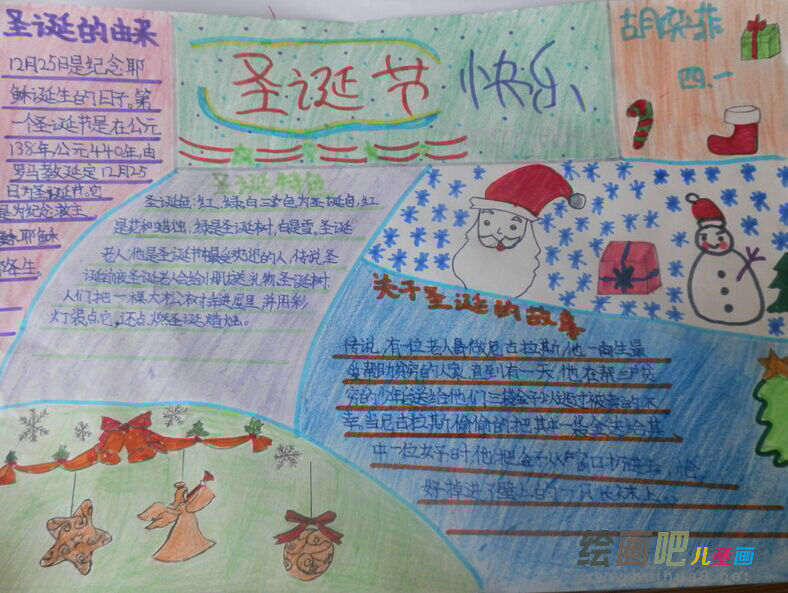 圣诞的由来
12月25日是纪念耶
稣诞生的日子。第
一个圣诞节是在公元
138年.公元440年,由
罗马教廷定12月25
日为圣诞节,它
是为纪念救主
耶稣
年生.
圣诞节快乐
胡 菲
四.一
圣诞特色
圣诞色:红,绿,白三色为圣诞色,红
是花和蜡烛,绿是圣诞树,白是雪。圣诞
老人:他是圣诞节最受欢迎的人,传说,圣
诞前夜圣诞老人会给小朋友送礼物.圣诞树:
人们把一棵大松树弄进屋里,并用彩
灯装点它,还点燃圣诞蜡烛。
关于圣诞的故事
传说,有一位老人最做尼古拉斯,他一向生最
爱帮助贫穷的人家,直到有一天,他在帮三户贫
穷的少年台送给他们三袋金子以逃过被卖的不
幸,当尼古拉斯偷偷的把其中一袋金送给其
中一位女子时,他把金子从窗口扔进去,恰
好掉进了壁上的一只长袜上。
绘画吧儿童画
www.huihua8.net